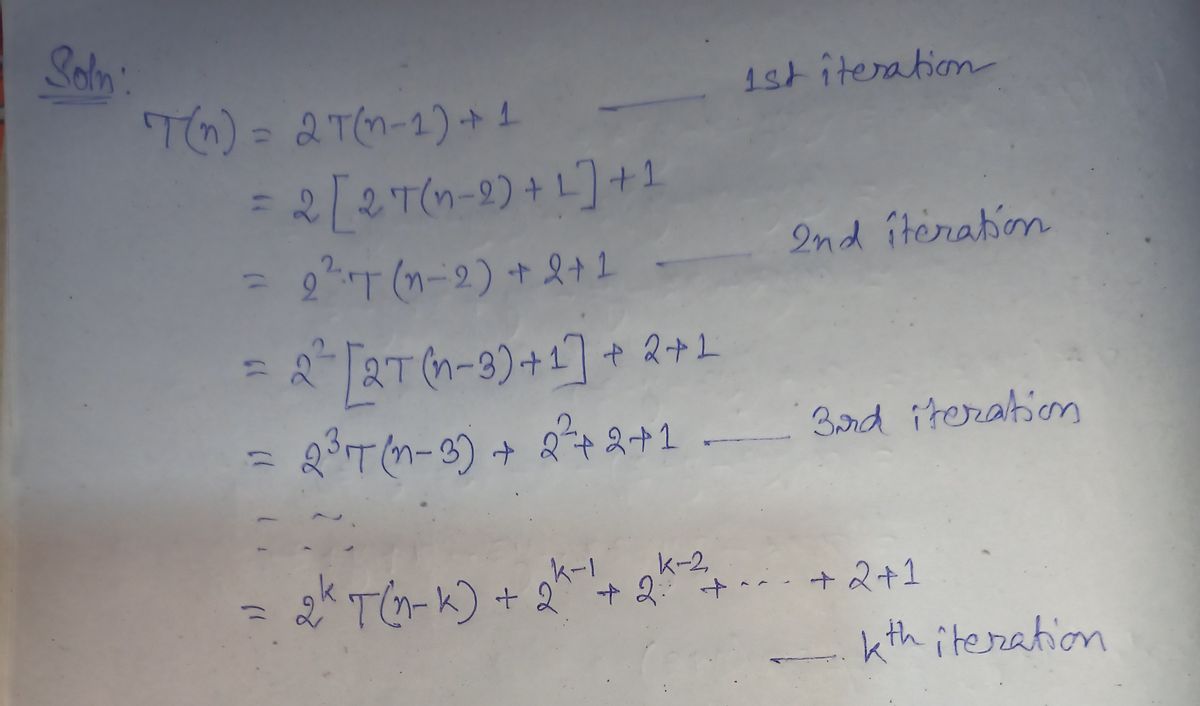 Soln:
T(n) = 2T(n-1) + 1 —— 1st iteration
= 2[2T(n-2) + 1] + 1
= 2².T(n-2) + 2+1 —— 2nd iteration
= 2²[2T(n-3)+1] + 2+1
= 2³T(n-3) + 2²+2+1 —— 3rd iteration
= 2ᵏ T(n-k) + 2ᵏ⁻¹ + 2ᵏ⁻² + ---- + 2+1
—— kᵗʰ iteration